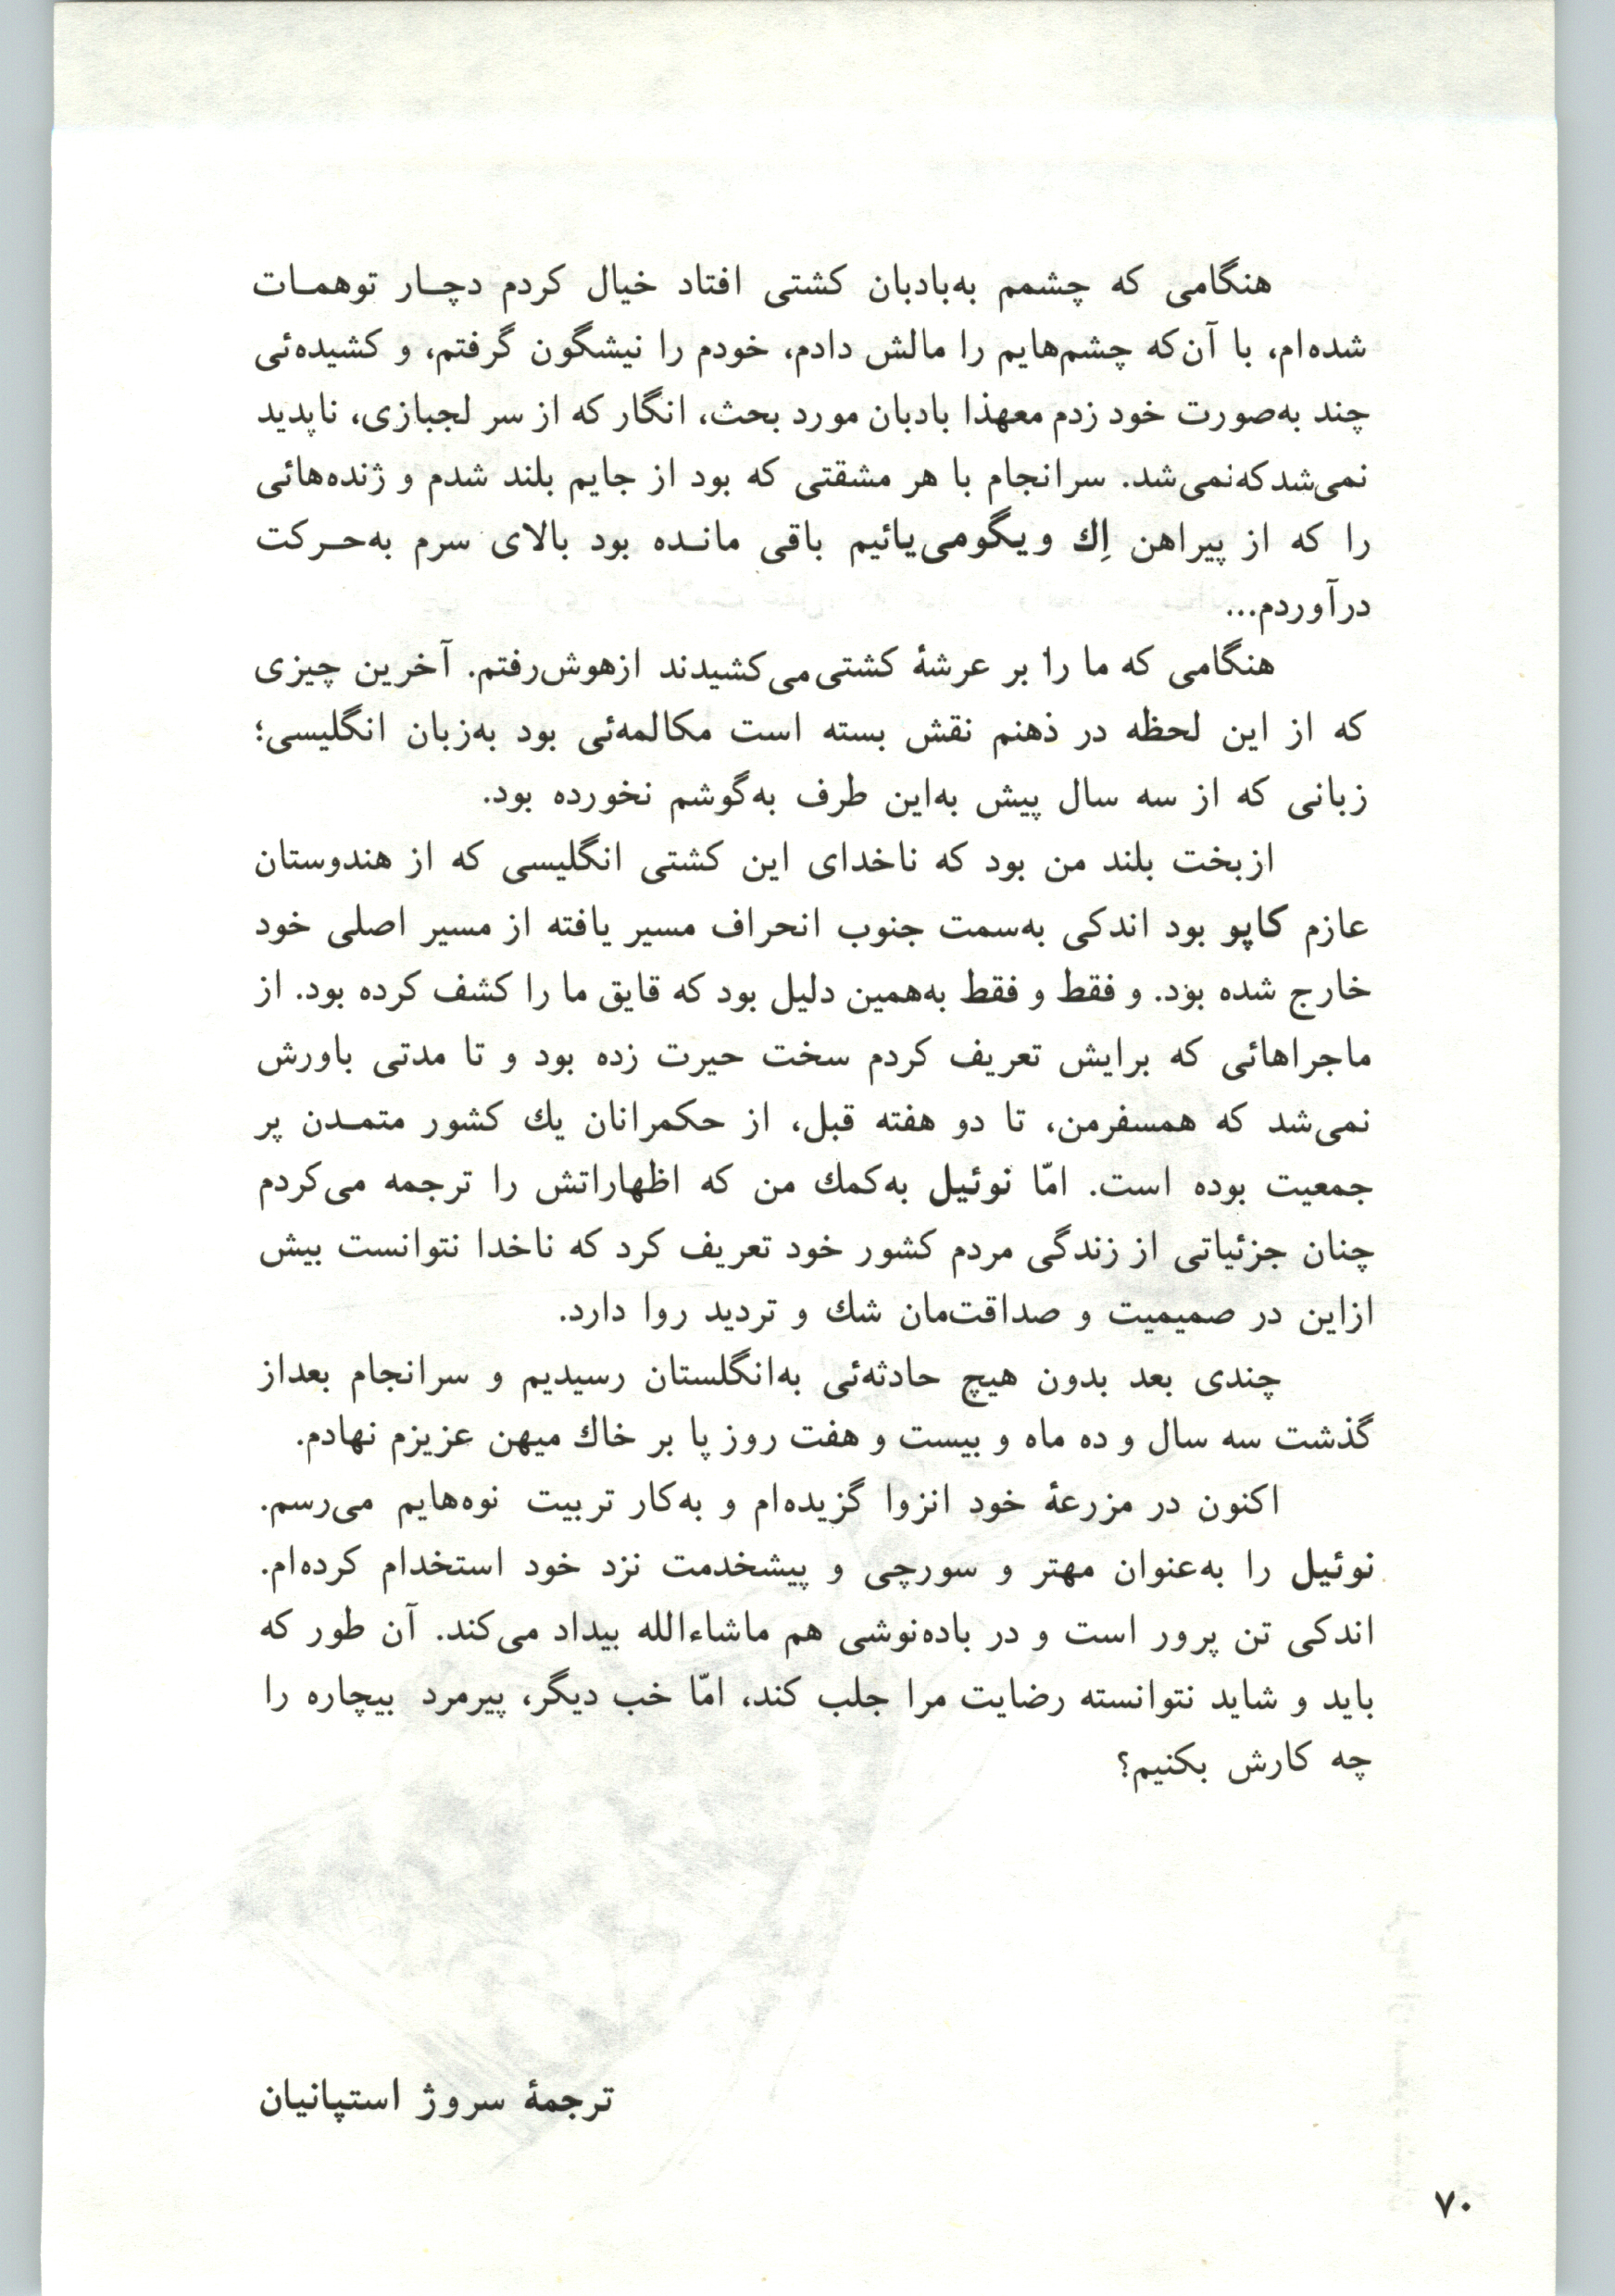 هنگامی که چشمم به‌بادبان کشتی افتاد خیال کردم دچـار توهمـات
شده‌ام، با آن‌که چشم‌هایم را مالش دادم، خودم را نیشگون گرفتم، و کشیده‌ئی
چند به‌صورت خود زدم معهذا بادبان مورد بحث، انگار که از سر لجبازی، ناپدید
نمی‌شد که نمی‌شد. سرانجام با هر مشقتی که بود از جایم بلند شدم و ژنده‌هائی
را که از پیراهن اِك ویگومی‌یائیم باقی مانـده بود بالای سرم به‌حـرکت
درآوردم...
هنگامی که ما را بر عرشهٔ کشتی می‌کشیدند ازهوش‌رفتم. آخرین چیزی
که از این لحظه در ذهنم نقش بسته است مکالمه‌ئی بود به‌زبان انگلیسی؛
زبانی که از سه سال پیش به‌این طرف به‌گوشم نخورده بود.
ازبخت بلند من بود که ناخدای این کشتی انگلیسی که از هندوستان
عازم کاپو بود اندکی به‌سمت جنوب انحراف مسیر یافته از مسیر اصلی خود
خارج شده بود. و فقط و فقط به‌همین دلیل بود که قایق ما را کشف کرده بود. از
ماجراهائی که برایش تعریف کردم سخت حیرت زده بود و تا مدتی باورش
نمی‌شد که همسفرمن، تا دو هفته قبل، از حکمرانان یك کشور متمـدن پر
جمعیت بوده است. امّا نوئیل به‌کمك من که اظهاراتش را ترجمه می‌کردم
چنان جزئیاتی از زندگی مردم کشور خود تعریف کرد که ناخدا نتوانست بیش
ازاین در صمیمیت و صداقت‌مان شك و تردید روا دارد.
چندی بعد بدون هیچ حادثه‌ئی به‌انگلستان رسیدیم و سرانجام بعداز
گذشت سه سال و ده ماه و بیست و هفت روز پا بر خاك میهن عزیزم نهادم.
اکنون در مزرعهٔ خود انزوا گزیده‌ام و به‌کار تربیت نوه‌هایم می‌رسم.
نوئیل را به‌عنوان مهتر و سورچی و پیشخدمت نزد خود استخدام کرده‌ام.
اندکی تن پرور است و در باده‌نوشی هم ماشاءالله بیداد می‌کند. آن طور که
باید و شاید نتوانسته رضایت مرا جلب کند، امّا خب دیگر، پیرمرد بیچاره را
چه کارش بکنیم؟
ترجمهٔ سروژ استپانیان
۷۰